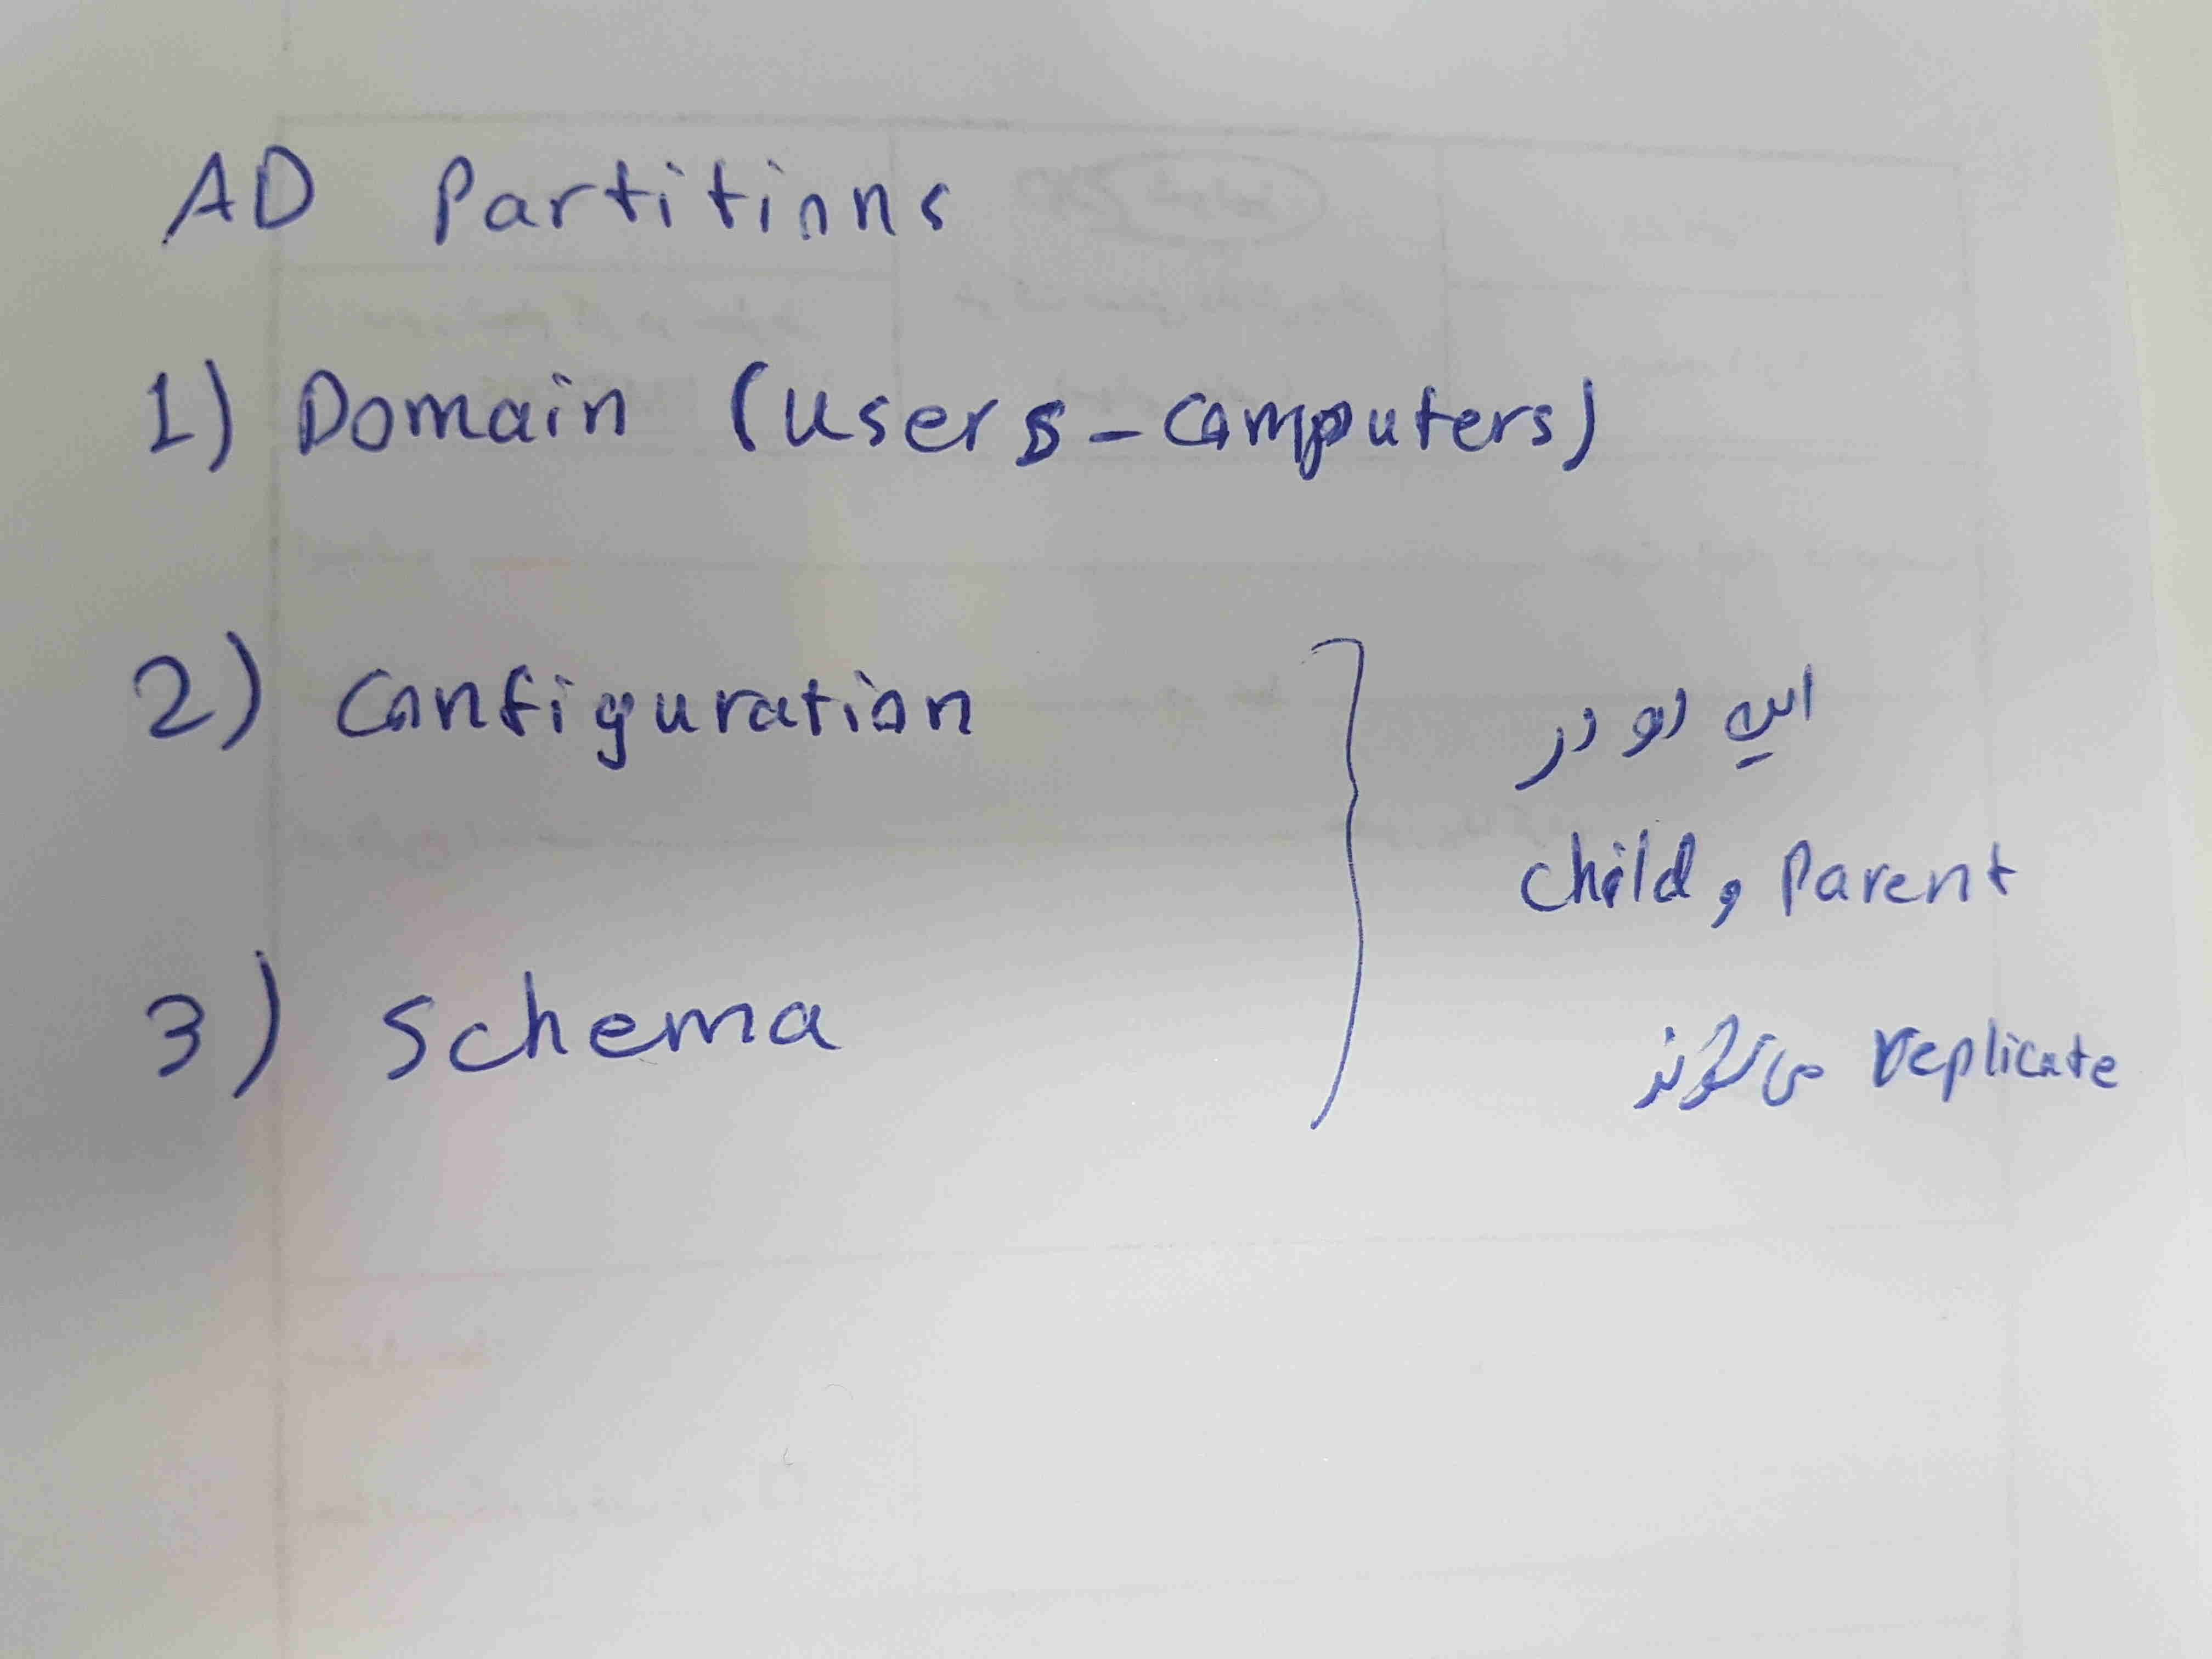 AD Partitions
1) Domain (users-computers)
2) Configuration
3) Schema
این دو در
child و Parent
replicate می‌شوند